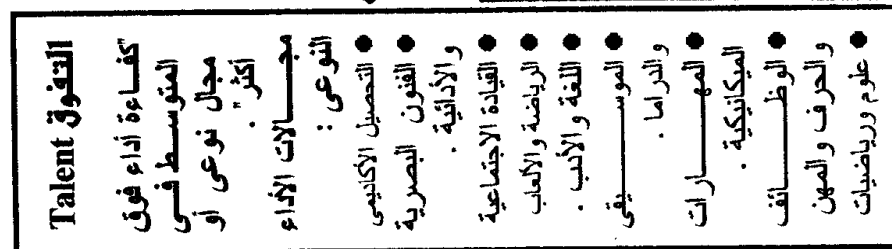 التفوق Talent
"كفاءة أداء فوق
المتوسط فى
مجال نوعى أو
أكثر".
مجالات الأداء
النوعى :
● التحصيل الأكاديمى
● الفنون البصرية
والأدائية .
● القيادة الاجتماعية
● الرياضة والألعاب
● اللغة والأدب .
● الموسيقى
والدراما .
● المهارات
الميكانيكية .
● الوظائف
والحرف والمهن
● علوم ورياضيات